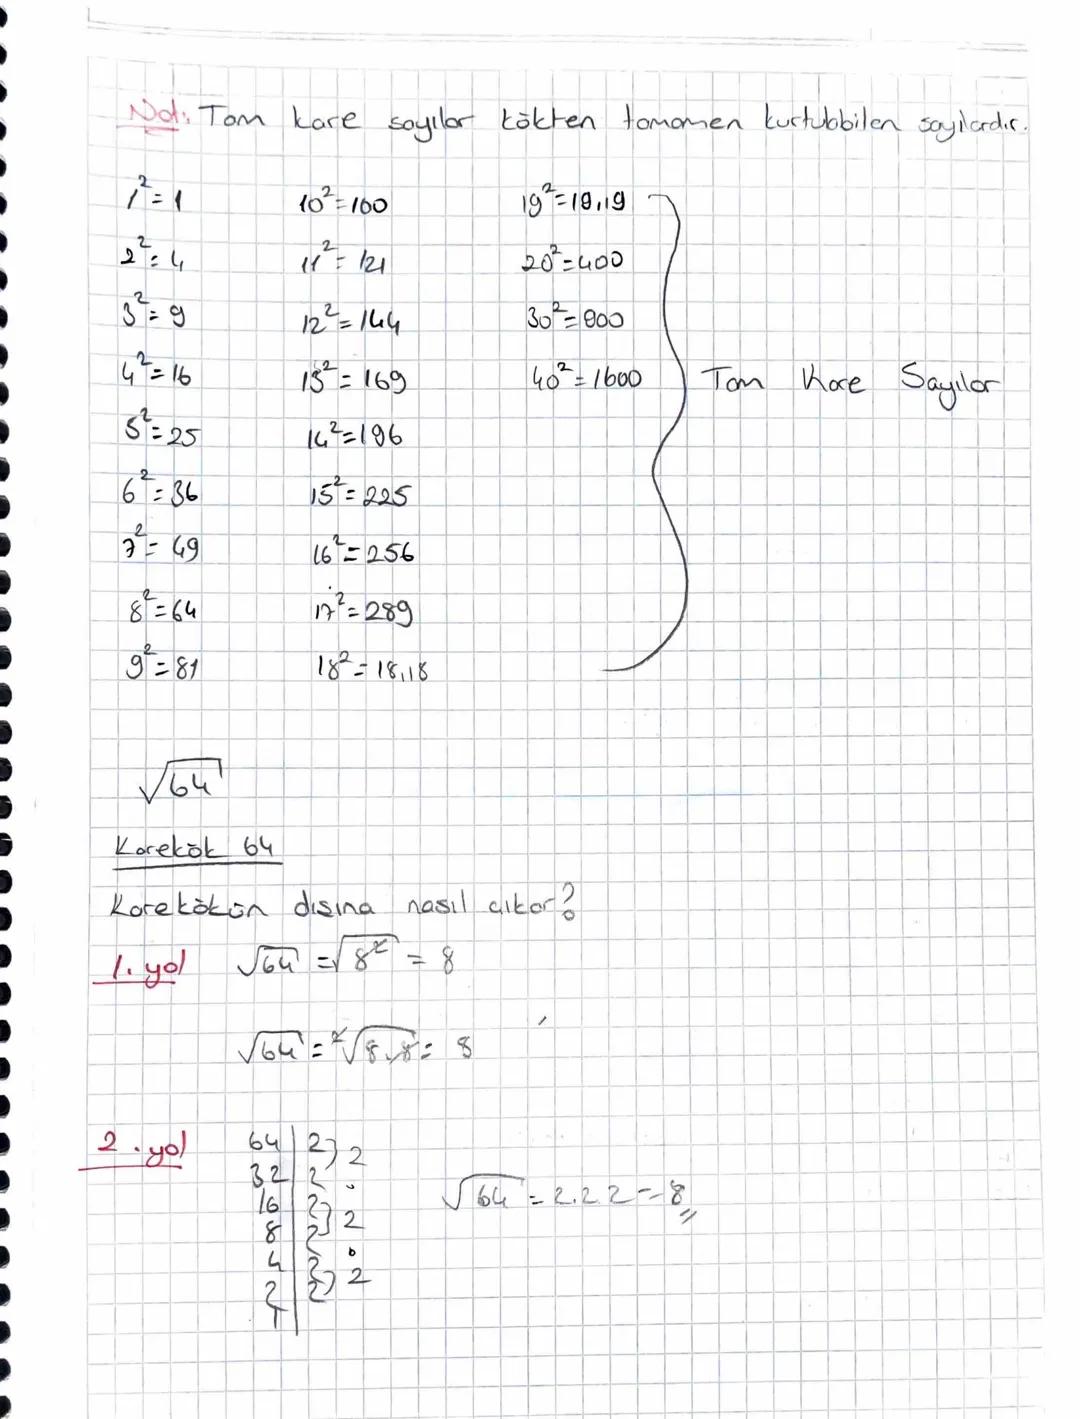 Not: Tam kare sayılar kökten tamamen kurtulabilen sayılardır.
1²=1
2²=4
3²=9
4²=16
5²=25
6²=36
7²=49
8²=64
9²=81
10²=100
11²=121
12²=144
13²=169
14²=196
15²=225
16²=256
17²=289
18²=18.18
19²=19.19
20²=400
30²=900
40²=1600
Tam Kare Sayılar
√64
Karekök 64
Karekökün dışına nasıl çıkar?
1. yol √64 = √8² = 8
√64 = ²√8.8 = 8
2. yol
64 | 2 } 2
32 | 2 .
16 | 2 } 2
8 | 2 .
4 | 2 } 2
2 | 2
1
√64 = 2.2.2 = 8